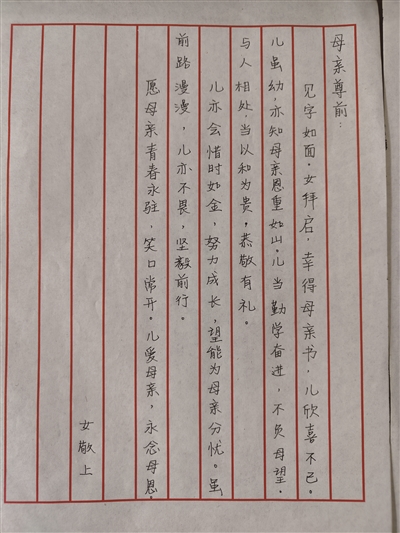 母亲尊前：
见字如面。女拜启，幸得母亲书，儿欣喜不已。
儿虽幼，亦知母亲恩重如山。儿当勤学奋进，不负母望。
与人相处，当以和为贵，恭敬有礼。
儿亦会惜时如金，努力成长，望能为母亲分忧。虽
前路漫漫，儿亦不畏，坚毅前行。
愿母亲青春永驻，笑口常开。儿爱母亲，永念母恩。
女敬上